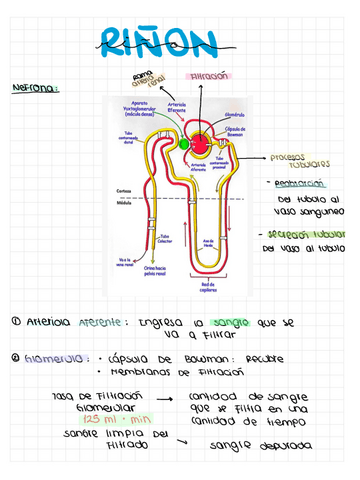 RIÑON
riñon
Rama arteria renal
Filtración
Nefrona:
Aparato
Yuxtaglomerular
(mácula densa)
Arteriola
Eferente
Glomérulo
Cápsula de
Bowman
Tubo
contorneado
distal
Arteriola
aferente
Tubo
contorneado
proximal
procesos
tubulares
- Reabsorción
Del tubulo al
vaso sanguneo
- secreción tubular
Del vaso al tubulo
Corteza
Médula
Tubo
Colector
Asa de
Henle
Va a la
vena renal
Orina hacia
pelvis renal
Red de
capilares
① Arteriola Aferente: Ingresa la sangre que se
va a Filtrar
② Glomerulo: • Cápsula de Bowman: Recubre
• Membranas de Filtración
Tasa de Filtración → cantidad de sangre
Glomerular que se Filtra en una
125 ml · min cantidad de tiempo
sangre limpia del → sangre depurada
Filtrado